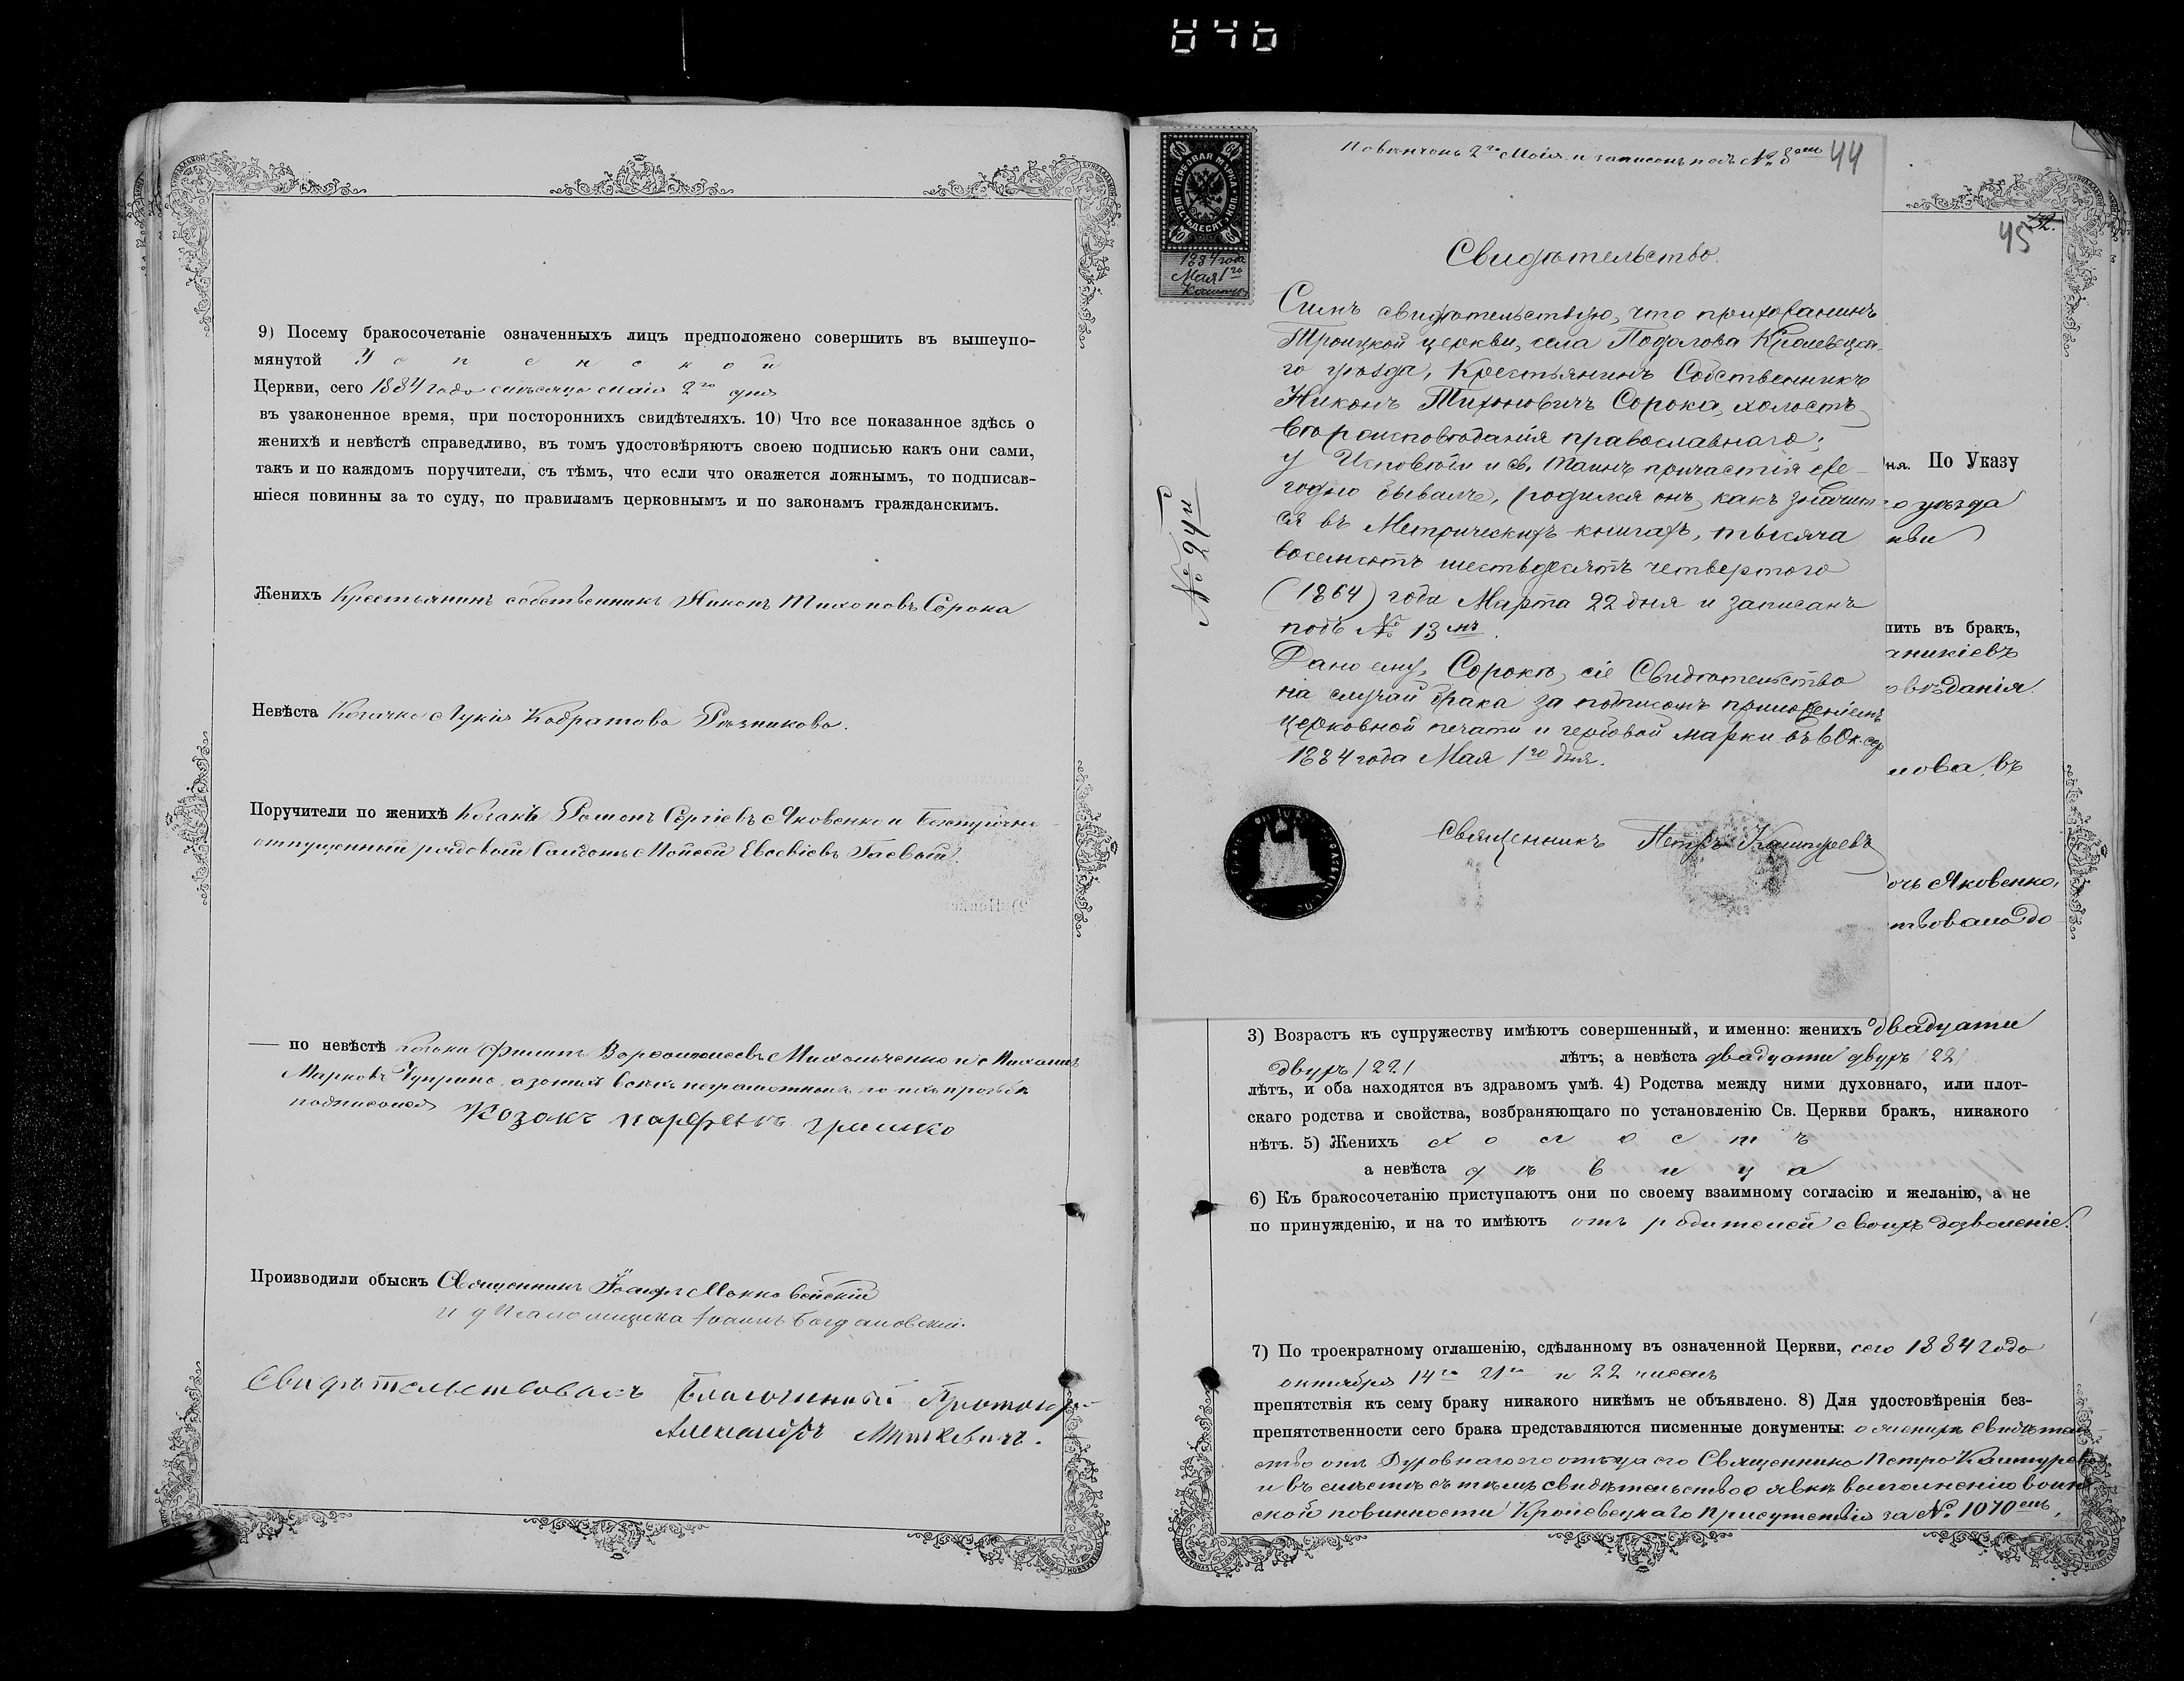 9) Посему бракосочетаніе означенныхъ лицъ предположено совершить въ вышеупо-
мянутой Успенской
Церкви, сего 1884 года мѣсяца маія 2го дня
въ узаконенное время, при постороннихъ свидѣтеляхъ. 10) Что все показанное здѣсь о
женихѣ и невѣстѣ справедливо, въ томъ удостовѣряютъ своею подписью какъ они сами,
такъ и по каждомъ поручители, съ тѣмъ, что если что окажется ложнымъ, то подписав-
шіеся повинны за то суду, по правиламъ церковнымъ и по законамъ гражданскимъ.
Женихъ Крестьянинъ собственникъ Никонъ Тихоновъ Сорока
Невѣста Козачка Лукія Кодратова Рѣзникова.
Поручители по женихѣ Козакъ Романъ Сергіевъ Яковенко и Безсрочно
отпущенный рядовой Солдатъ Мойсей Евсевіевъ Гаевой.
— по невѣстѣ Козаки Филипъ Михальченко и Михаилъ
Марковъ Чуприна, а за нихъ всѣхъ неграмотныхъ по ихъ просьбѣ
подписался Козакъ Парфенъ Гришко
Производили обыскъ Священникъ Іосифъ
и д Псаломщика Іоаннъ Богдановскій.
Свидѣтельствовалъ Благочинный Протоіер.
Александръ Мицкевичъ.
Повѣнчанъ 2го Маія и записанъ подъ № 8омъ 44
ГЕРБОВАЯ МАРКА
ШЕСТЬДЕСЯТЪ КОП.
60
1884 года
Мая 1го
№ 24й
Свидѣтельство.
Симъ свидѣтельствую, что прихожанинъ
Троицкой церкви, села Подолова Кролевецка-
го уѣзда, Крестьянинъ Собственникъ
Никонъ Тихоновичъ Сорока, холостъ,
вѣроисповѣданія православнаго;
у Исповѣди и св. Таинъ причастія еже-
годно бывалъ, родился онъ, какъ значит-
ся въ Метрическихъ книгахъ, тысяча
восемьсотъ шестьдесятъ четвертого
(1864) года Марта 22 дня и записанъ
подъ № 13мъ.
Дано ему, Сорокѣ, сіе Свидѣтельство
на случай брака за подписомъ приложеніемъ
церковной печати и гербовой марки въ 60 к. сер
1884 года Мая 1го дня.
Священникъ Петръ Кашпуревъ
45 32.
ня. По Указу
о уѣзда
кви
пить въ бракъ,
аникіевъ
овѣданія.
лова, въ
Яковенко,
до
3) Возрастъ къ супружеству имѣютъ совершенный, и именно: женихъ двадцати
двухъ /22/ лѣтъ; а невѣста двадцати двухъ /22/
лѣтъ, и оба находятся въ здравомъ умѣ. 4) Родства между ними духовнаго, или плот-
скаго родства и свойства, возбраняющаго по установленію Св. Церкви бракъ, никакого
нѣтъ. 5) Женихъ холостъ
а невѣста дѣвица
6) Къ бракосочетанію приступаютъ они по своему взаимному согласію и желанію, а не
по принужденію, и на то имѣютъ отъ родителей своихъ дозволеніе.
7) По троекратному оглашенію, сдѣланному въ означенной Церкви, сего 1884 года
октября 14го 21го и 22 чиселъ
препятствія къ сему браку никакого никѣмъ не объявлено. 8) Для удостовѣренія без-
препятственности сего брака представляются писменные документы: о женихѣ Свидѣтель-
ство отъ Духовнаго отца его Священника Петра Кашпурева
и вмѣстѣ съ тѣмъ свидѣтельство о явкѣ къ выполненію воин-
ской повинности Кролевецкаго Присутствія за № 1070емъ,